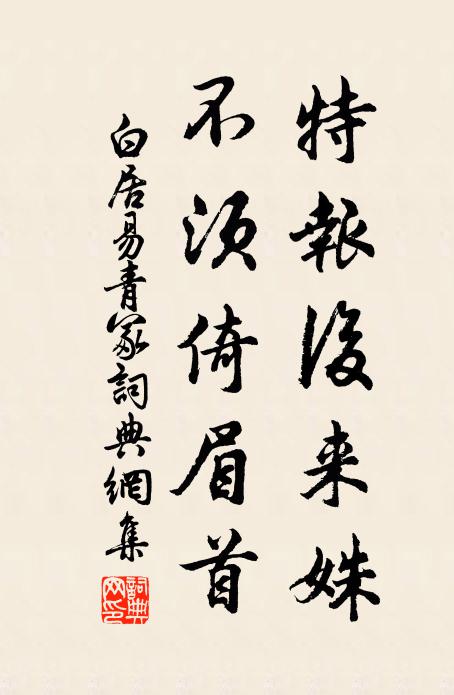 特報後来姝
不須倚眉首
白居易青冢詞典網集
詞典网印